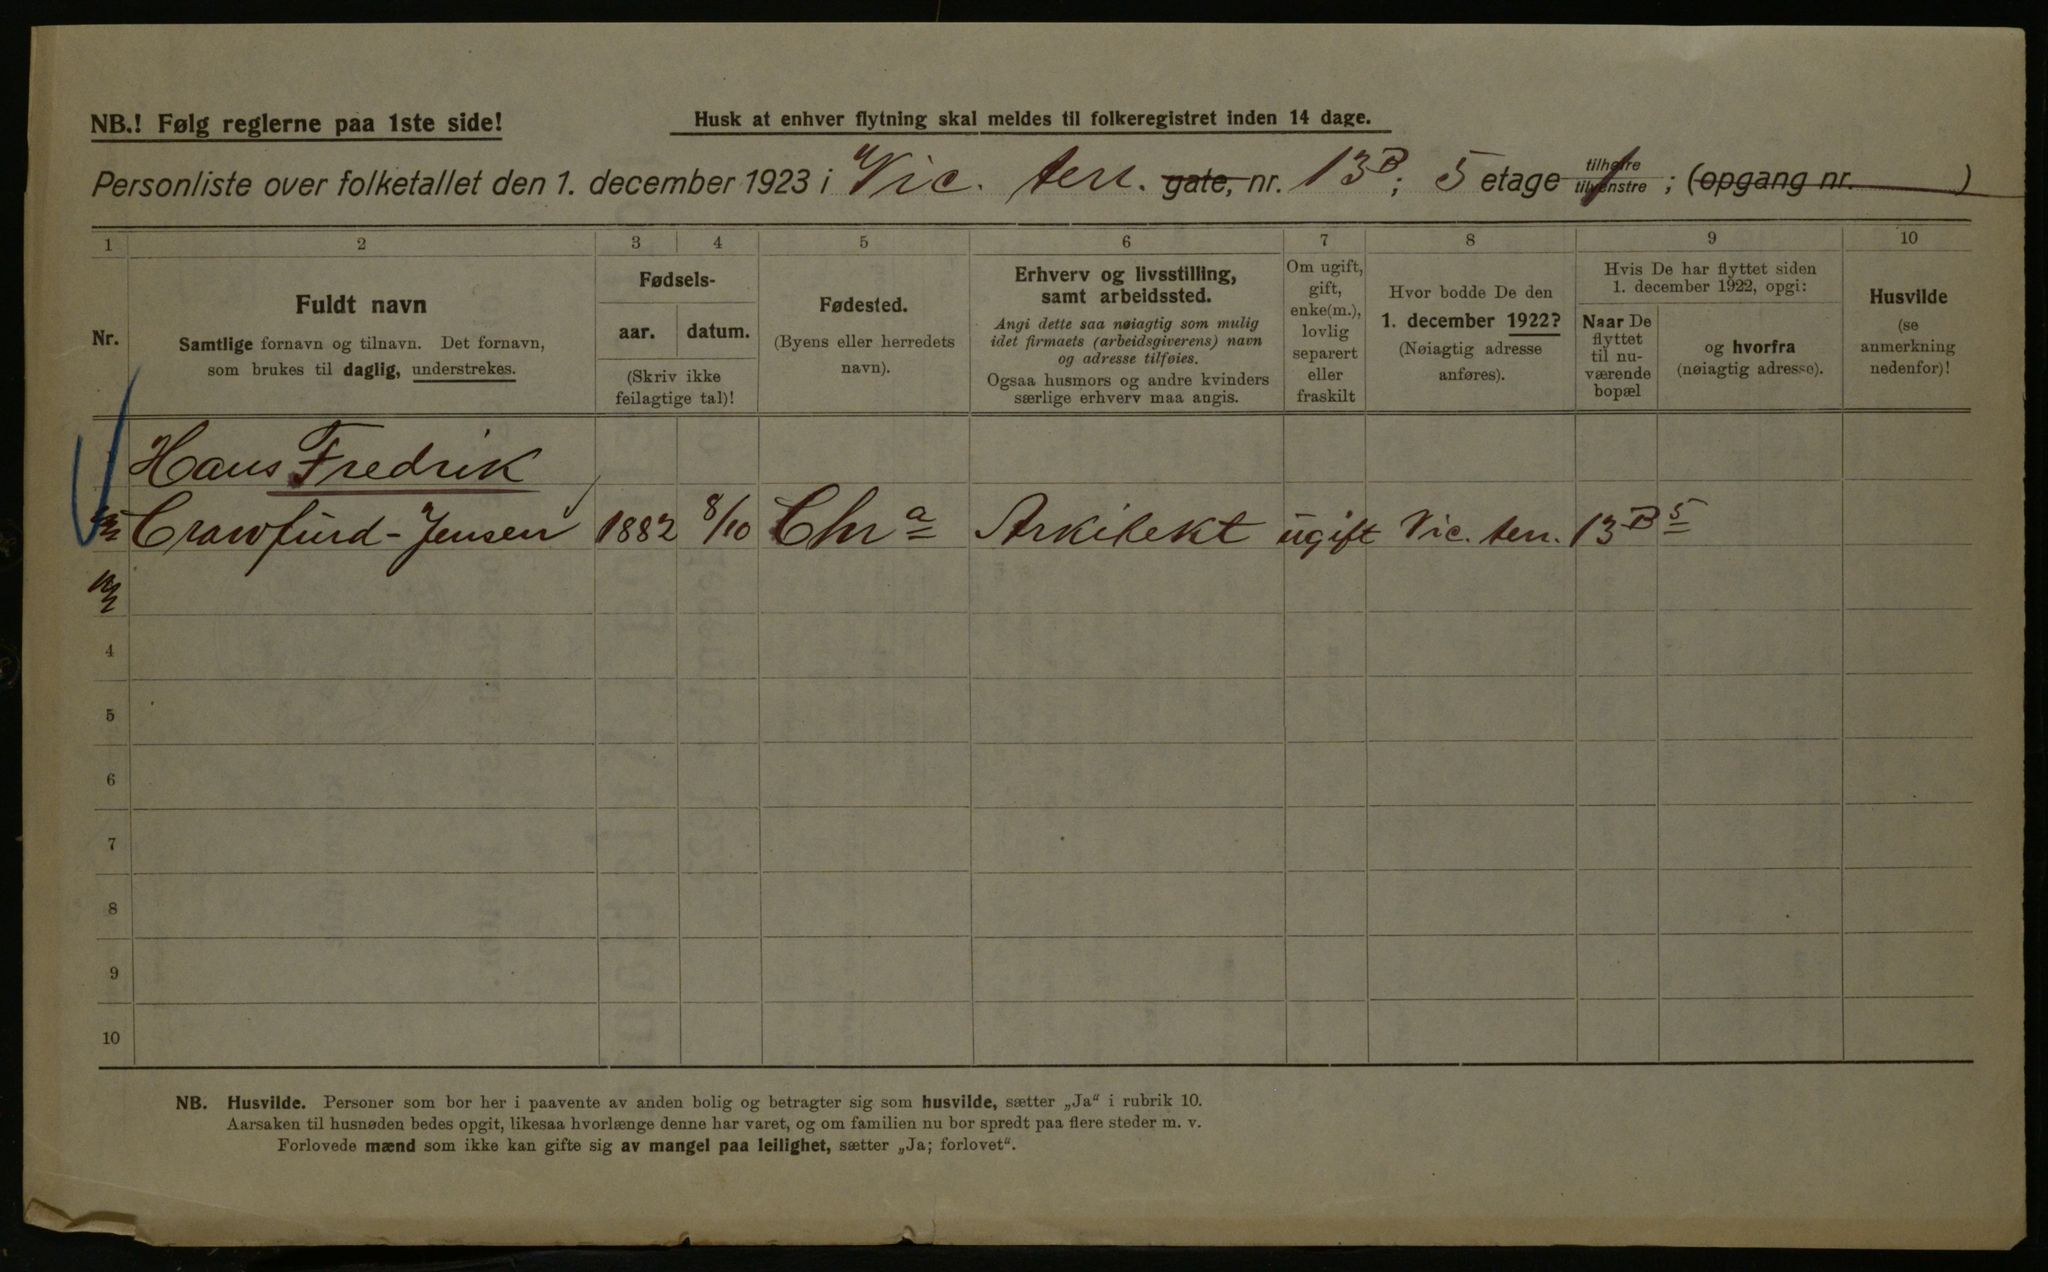 NB.! Følg reglerne paa 1ste side!
Husk at enhver flytning skal meldes til folkeregistret inden 14 dage.
Personliste over folketallet den 1. december 1923 i Vic. terr. gate, nr. 13B; 5 etage tilhøire tilvenstre; (opgang nr. )
1 2 3 4 5 6 7 8 9 10
Nr.
Fuldt navn
Samtlige fornavn og tilnavn. Det fornavn,
som brukes til daglig, understrekes.
Fødsels-
aar. datum.
(Skriv ikke
feilagtige tal)!
Fødested.
(Byens eller herredets
navn).
Erhverv og livsstilling,
samt arbeidssted.
Angi dette saa nøiagtig som mulig
idet firmaets (arbeidsgiverens) navn
og adresse tilføies.
Ogsaa husmors og andre kvinders
særlige erhverv maa angis.
Om ugift,
gift,
enke(m.),
lovlig
separert
eller
fraskilt
Hvor bodde De den
1. december 1922?
(Nøiagtig adresse
anføres).
Hvis De har flyttet siden
1. december 1922, opgi:
Naar De
flyttet
til nu-
værende
bopæl
og hvorfra
(nøiagtig adresse).
Husvilde
(se
anmerkning
nedenfor)!
Hans Fredrik
Crawfurd-Jensen 1882 8/10 Chra Arkitekt ugift Vic. terr. 13B 5
4
5
6
7
8
9
10
NB. Husvilde. Personer som bor her i paavente av anden bolig og betragter sig som husvilde, sætter „Ja“ i rubrik 10.
Aarsaken til husnøden bedes opgit, likesaa hvorlænge denne har varet, og om familien nu bor spredt paa flere steder m. v.
Forlovede mænd som ikke kan gifte sig av mangel paa leilighet, sætter „Ja; forlovet“.